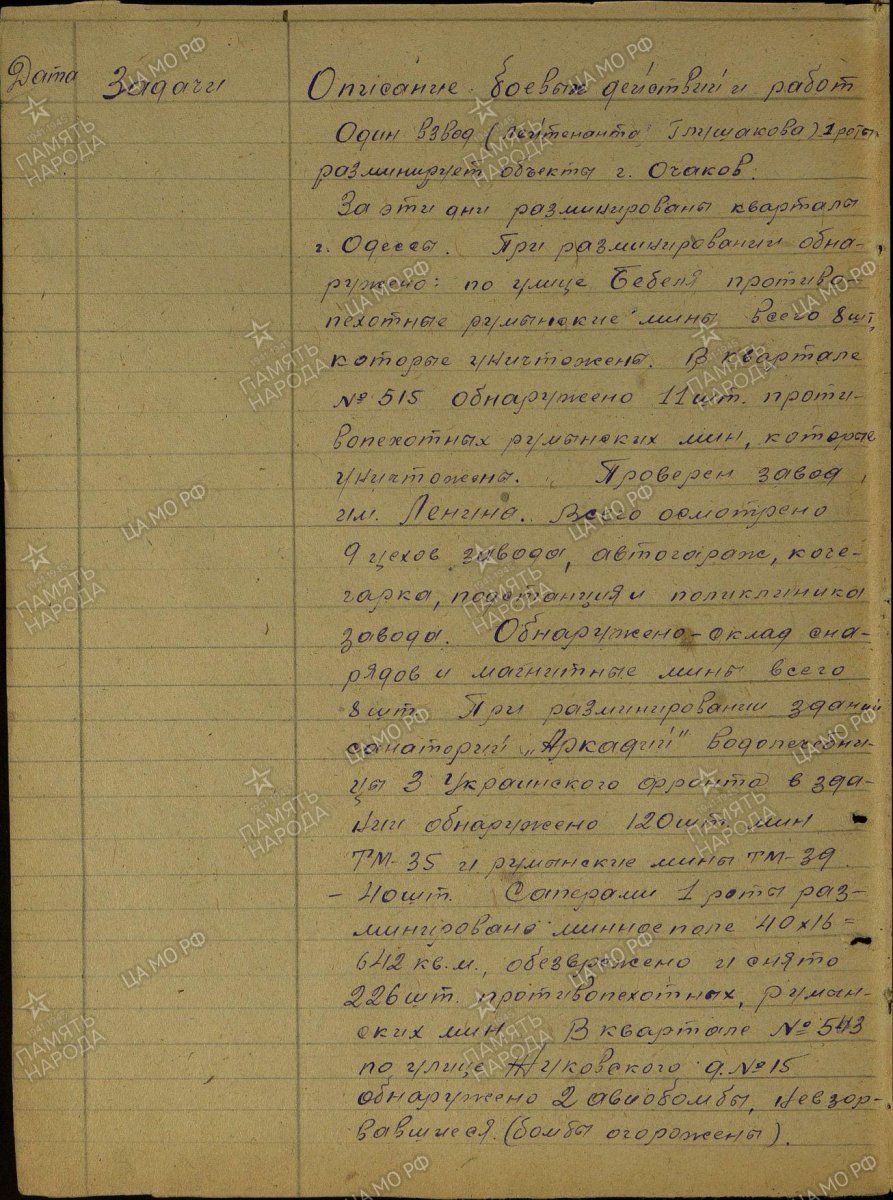 Дата Задачи Описание боевых действий и работ
Один взвод (лейтенанта Глушакова) 1 роты
разминирует объекты г. Очаков.
За эти дни разминированы кварталы
г. Одессы. При разминировании обна-
ружено: по улице Бебеля противо-
пехотные румынские мины всего 8 шт,
которые уничтожены. В квартале
№ 515 обнаружено 11 шт. проти-
вопехотных румынских мин, которые
уничтожены. Проверен завод
им. Ленина. Всего осмотрено
9 цехов завода, автогараж, коче-
гарка, подстанция и поликлиника
завода. Обнаружено - склад сна-
рядов и магнитные мины всего
8 шт. При разминировании зданий
санаторий „Аркадий" водолечебни-
цы 3 Украинского фронта в зда-
нии обнаружено 120 шт. мин
ТМ-35 и румынские мины ТМ-39
- 40 шт. Саперами 1 роты раз-
минировано минное поле 40х16=
642 кв.м., обезврежено и снято
226 шт. противопехотных, румын-
ских мин. В квартале № 543
по улице Жуковского д. № 15
обнаружено 2 авиобомбы, невзор-
вавшиеся. (бомбы огорожены).
ЦА МО РФ
ПАМЯТЬ
НАРОДА